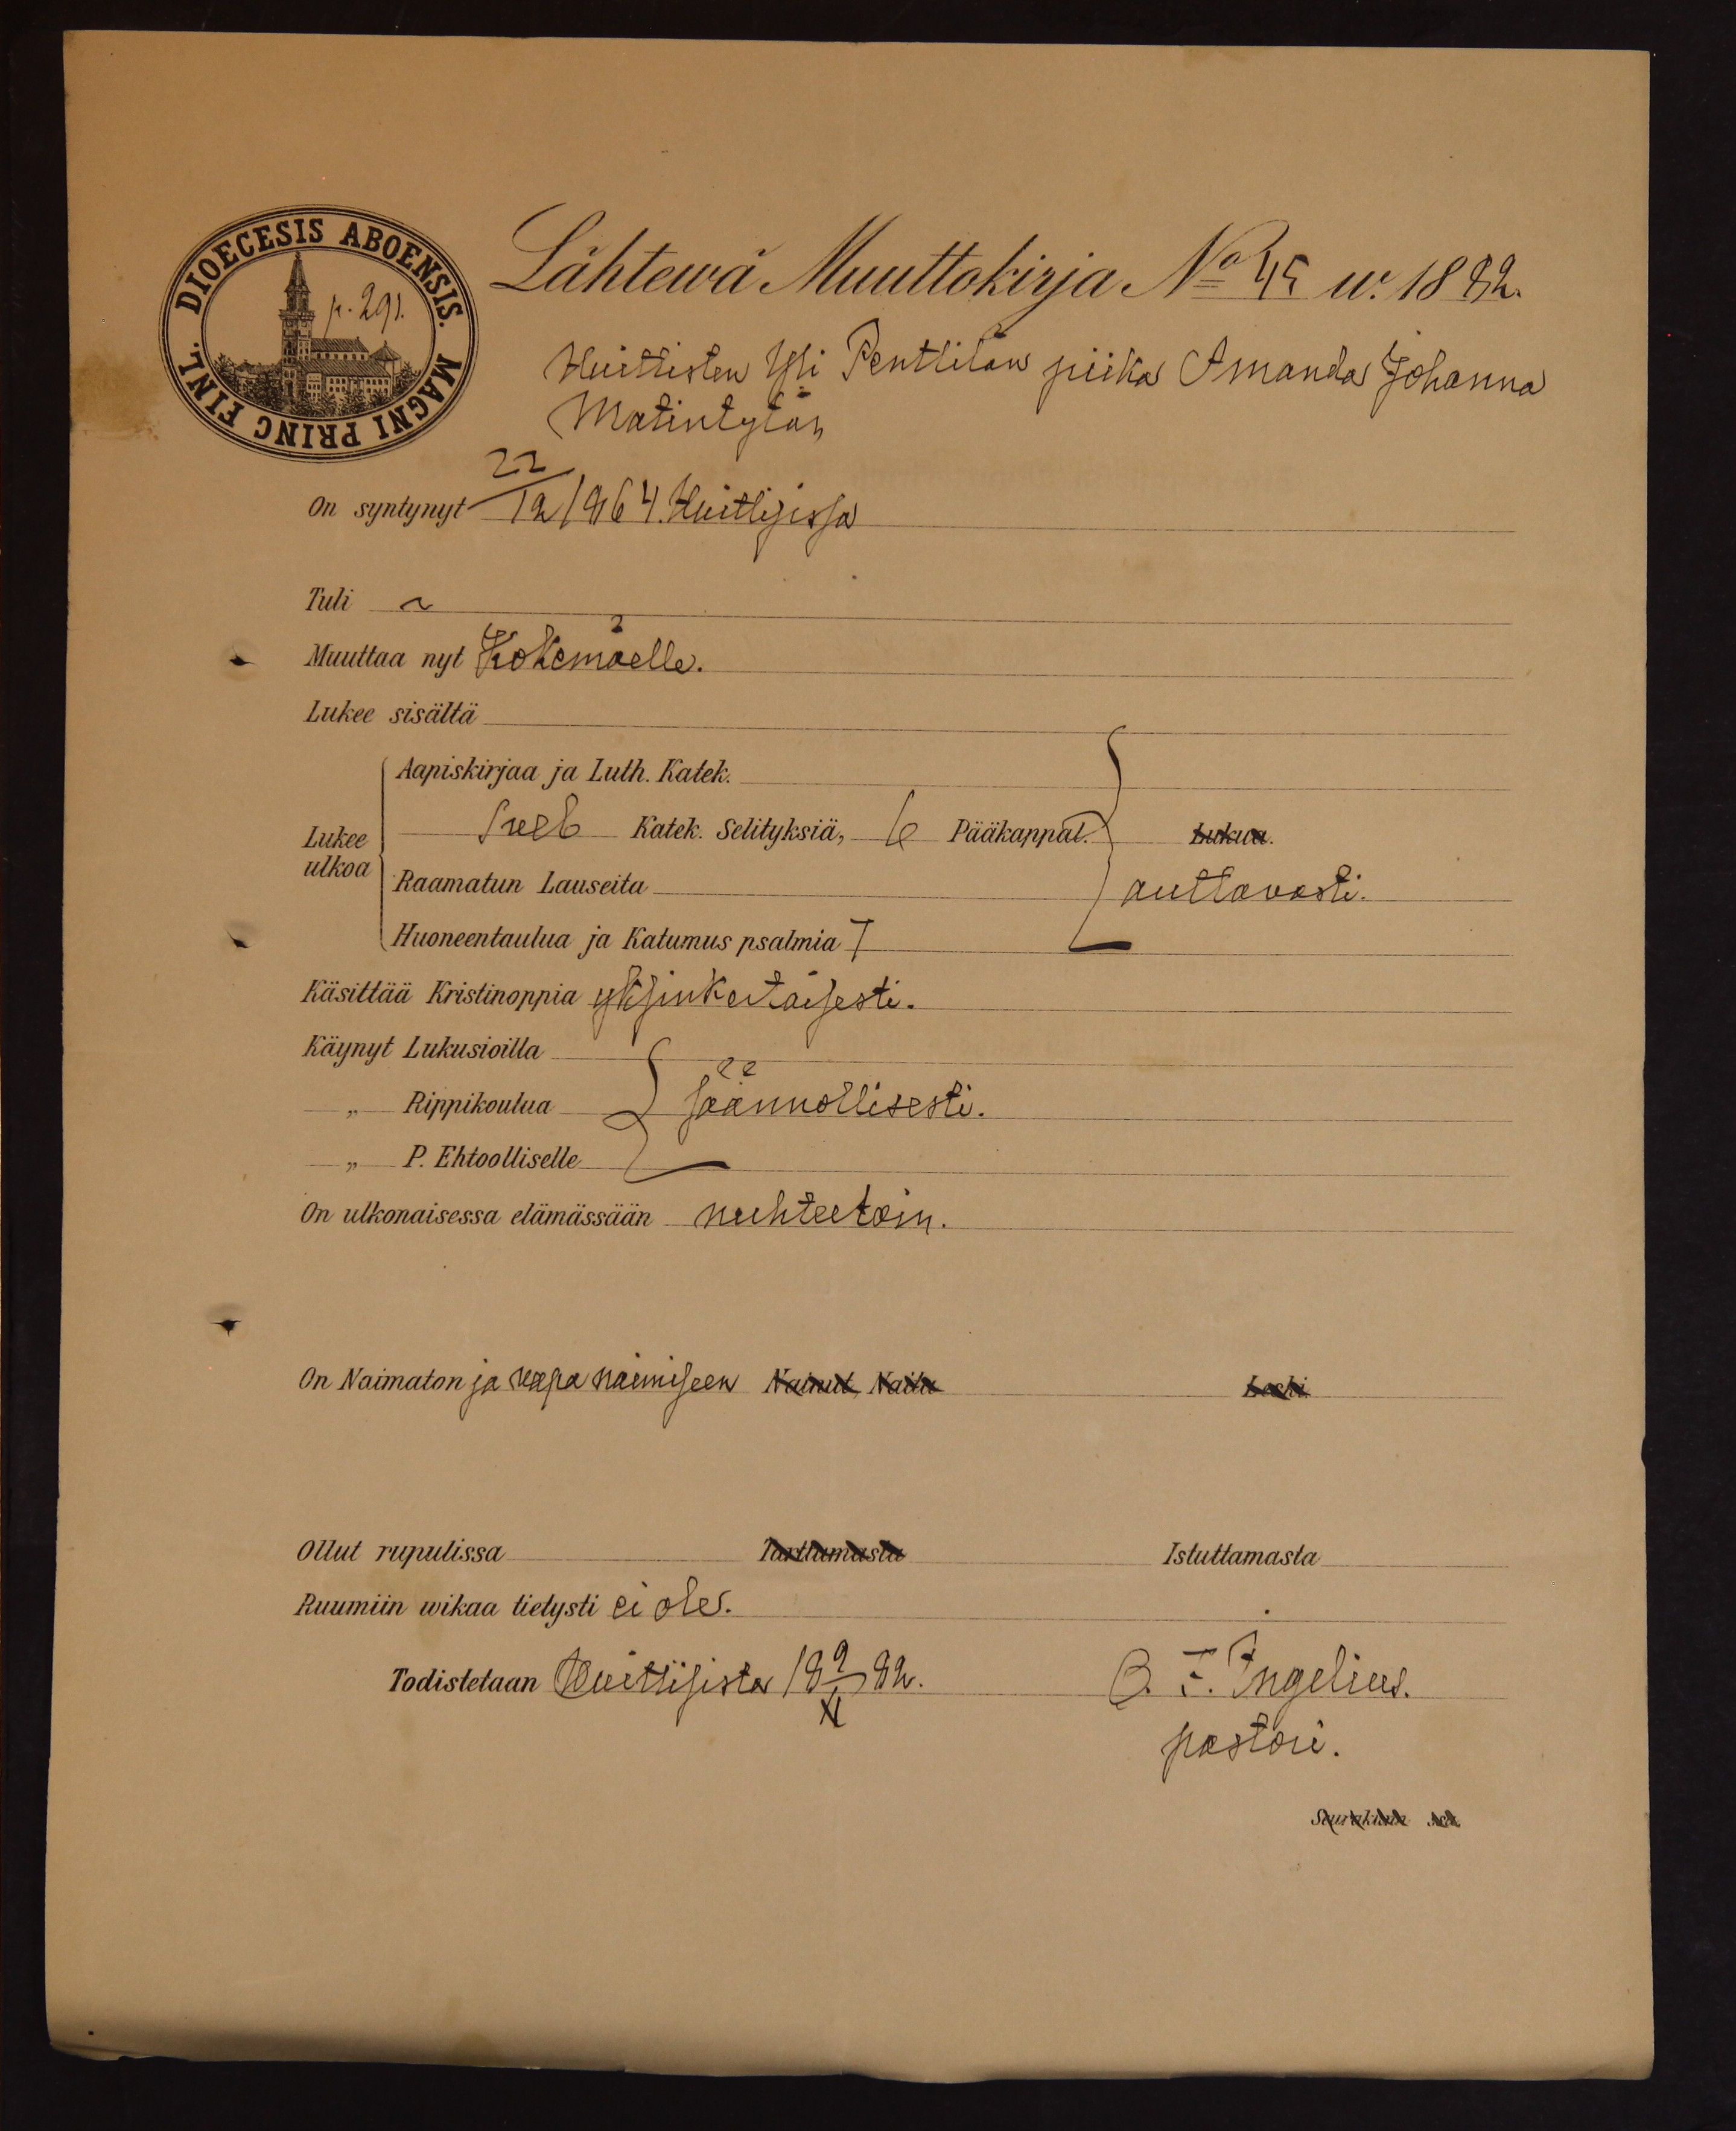 DIOECESIS ABOENSIS. MAGNI PRINC FINL.
p. 291.
Lähtewä Muuttokirja No 45 w. 1882.
Huittisten Yli Penttilän piika Amanda Johanna
Matintytär,
On syntynyt 22/12 1864. Huittisissa
Tuli
Muuttaa nyt Kokemäelle.
Lukee sisältä
Aapiskirjaa ja Luth. Katek.
Lukee ulkoa
Sveb Katek. Selityksiä, 6 Pääkappal. Lukua.
Raamatun Lauseita auttavasti.
Huoneentaulua ja Katumus psalmia 7
Käsittää Kristinoppia yksinkertaisesti.
Käynyt Lukusioilla
„ Rippikoulua säännöllisesti.
„ P. Ehtoolliselle
On ulkonaisessa elämässään nuhteetoin.
On Naimaton ja vapa naimiseen Nainut, Naitu Leski
Ollut rupulissa Tarttumasta Istuttamasta
Ruumiin wikaa tietysti ei ole.
Todistetaan Huittisista 18 9/XI 82. F. Ingelius.
pastori.